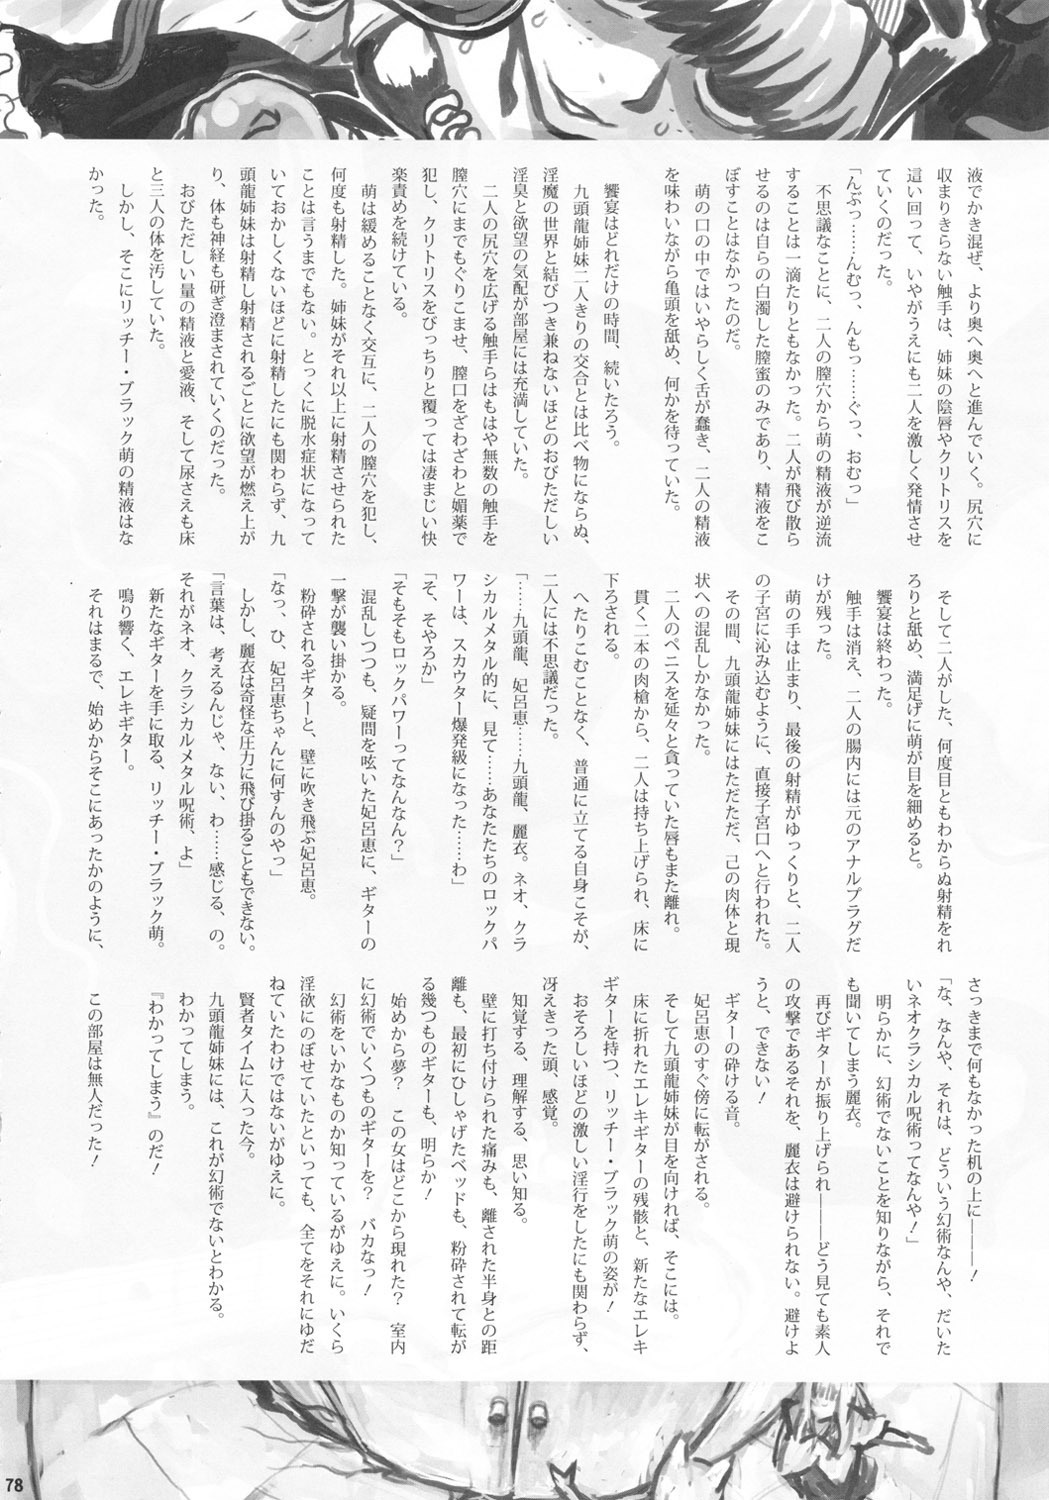 液でかき混ぜ、より奥へ奥へと進んでいく。尻穴に
収まりきらない触手は、姉妹の陰唇やクリトリスを
這い回って、いやがうえにも二人を激しく発情させ
ていくのだった。
「んぶっ……んむっ、んもっ……ぐっ、おむっ」
不思議なことに、二人の膣穴から萌の精液が逆流
することは一滴たりともなかった。二人が飛び散ら
せるのは自らの白濁した膣蜜のみであり、精液をこ
ぼすことはなかったのだ。
萌の口の中ではいやらしく舌が蠢き、二人の精液
を味わいながら亀頭を舐め、何かを待っていた。
饗宴はどれだけの時間、続いたろう。
九頭龍姉妹二人きりの交合とは比べ物にならぬ、
淫魔の世界と結びつき兼ねないほどのおびただしい
淫臭と欲望の気配が部屋には充満していた。
二人の尻穴を広げる触手らはもはや無数の触手を
膣穴にまでもぐりこませ、膣口をざわざわと媚薬で
犯し、クリトリスをびっちりと覆っては凄まじい快
楽責めを続けている。
萌は緩めることなく交互に、二人の膣穴を犯し、
何度も射精した。姉妹がそれ以上に射精させられた
ことは言うまでもない。とっくに脱水症状になって
いておかしくないほどに射精したにも関わらず、九
頭龍姉妹は射精し射精されるごとに欲望が燃え上が
り、体も神経も研ぎ澄まされていくのだった。
おびただしい量の精液と愛液、そして尿さえも床
と三人の体を汚していた。
しかし、そこにリッチー・ブラック萌の精液はな
かった。
そして二人がした、何度目ともわからぬ射精をれ
ろりと舐め、満足げに萌が目を細めると。
饗宴は終わった。
触手は消え、二人の腸内には元のアナルプラグだ
けが残った。
萌の手は止まり、最後の射精がゆっくりと、二人
の子宮に沁み込むように、直接子宮口へと行われた。
その間、九頭龍姉妹にはただただ、己の肉体と現
状への混乱しかなかった。
二人のペニスを延々と貪っていた唇もまた離れ。
貫く二本の肉槍から、二人は持ち上げられ、床に
下ろされる。
へたりこむことなく、普通に立てる自身こそが、
二人には不思議だった。
「……九頭龍、妃呂恵……九頭龍、麗衣。ネオ、クラ
シカルメタル的に、見て……あなたたちのロックパ
ワーは、スカウター爆発級になった……わ」
「そ、そやろか」
「そもそもロックパワーってなんなん？」
混乱しつつも、疑問を呟いた妃呂恵に、ギターの
一撃が襲い掛かる。
粉砕されるギターと、壁に吹き飛ぶ妃呂恵。
「なっ、ひ、妃呂恵ちゃんに何すんのやっ」
しかし、麗衣は奇怪な圧力に飛び掛ることもできない。
「言葉は、考えるんじゃ、ない、わ……感じる、の。
それがネオ、クラシカルメタル呪術、よ」
新たなギターを手に取る、リッチー・ブラック萌。
鳴り響く、エレキギター。
それはまるで、始めからそこにあったかのように、
さっきまで何もなかった机の上に―――！
「な、なんや、それは、どういう幻術なんや、だいた
いネオクラシカル呪術ってなんや！」
明らかに、幻術でないことを知りながら、それで
も聞いてしまう麗衣。
再びギターが振り上げられ―――どう見ても素人
の攻撃であるそれを、麗衣は避けられない。避けよ
うと、できない！
ギターの砕ける音。
妃呂恵のすぐ傍に転がされる。
そして九頭龍姉妹が目を向ければ、そこには。
床に折れたエレキギターの残骸と、新たなエレキ
ギターを持つ、リッチー・ブラック萌の姿が！
おそろしいほどの激しい淫行をしたにも関わらず、
冴えきった頭、感覚。
知覚する、理解する、思い知る。
壁に打ち付けられた痛みも、離された半身との距
離も、最初にひしゃげたベッドも、粉砕されて転が
る幾つものギターも、明らか！
始めから夢？　この女はどこから現れた？　室内
に幻術でいくつものギターを？　バカなっ！
幻術をいかなものか知っているがゆえに。いくら
淫欲にのぼせていたといっても、全てをそれにゆだ
ねていたわけではないがゆえに。
賢者タイムに入った今。
九頭龍姉妹には、これが幻術でないとわかる。
わかってしまう。
『わかってしまう』のだ！
この部屋は無人だった！
78